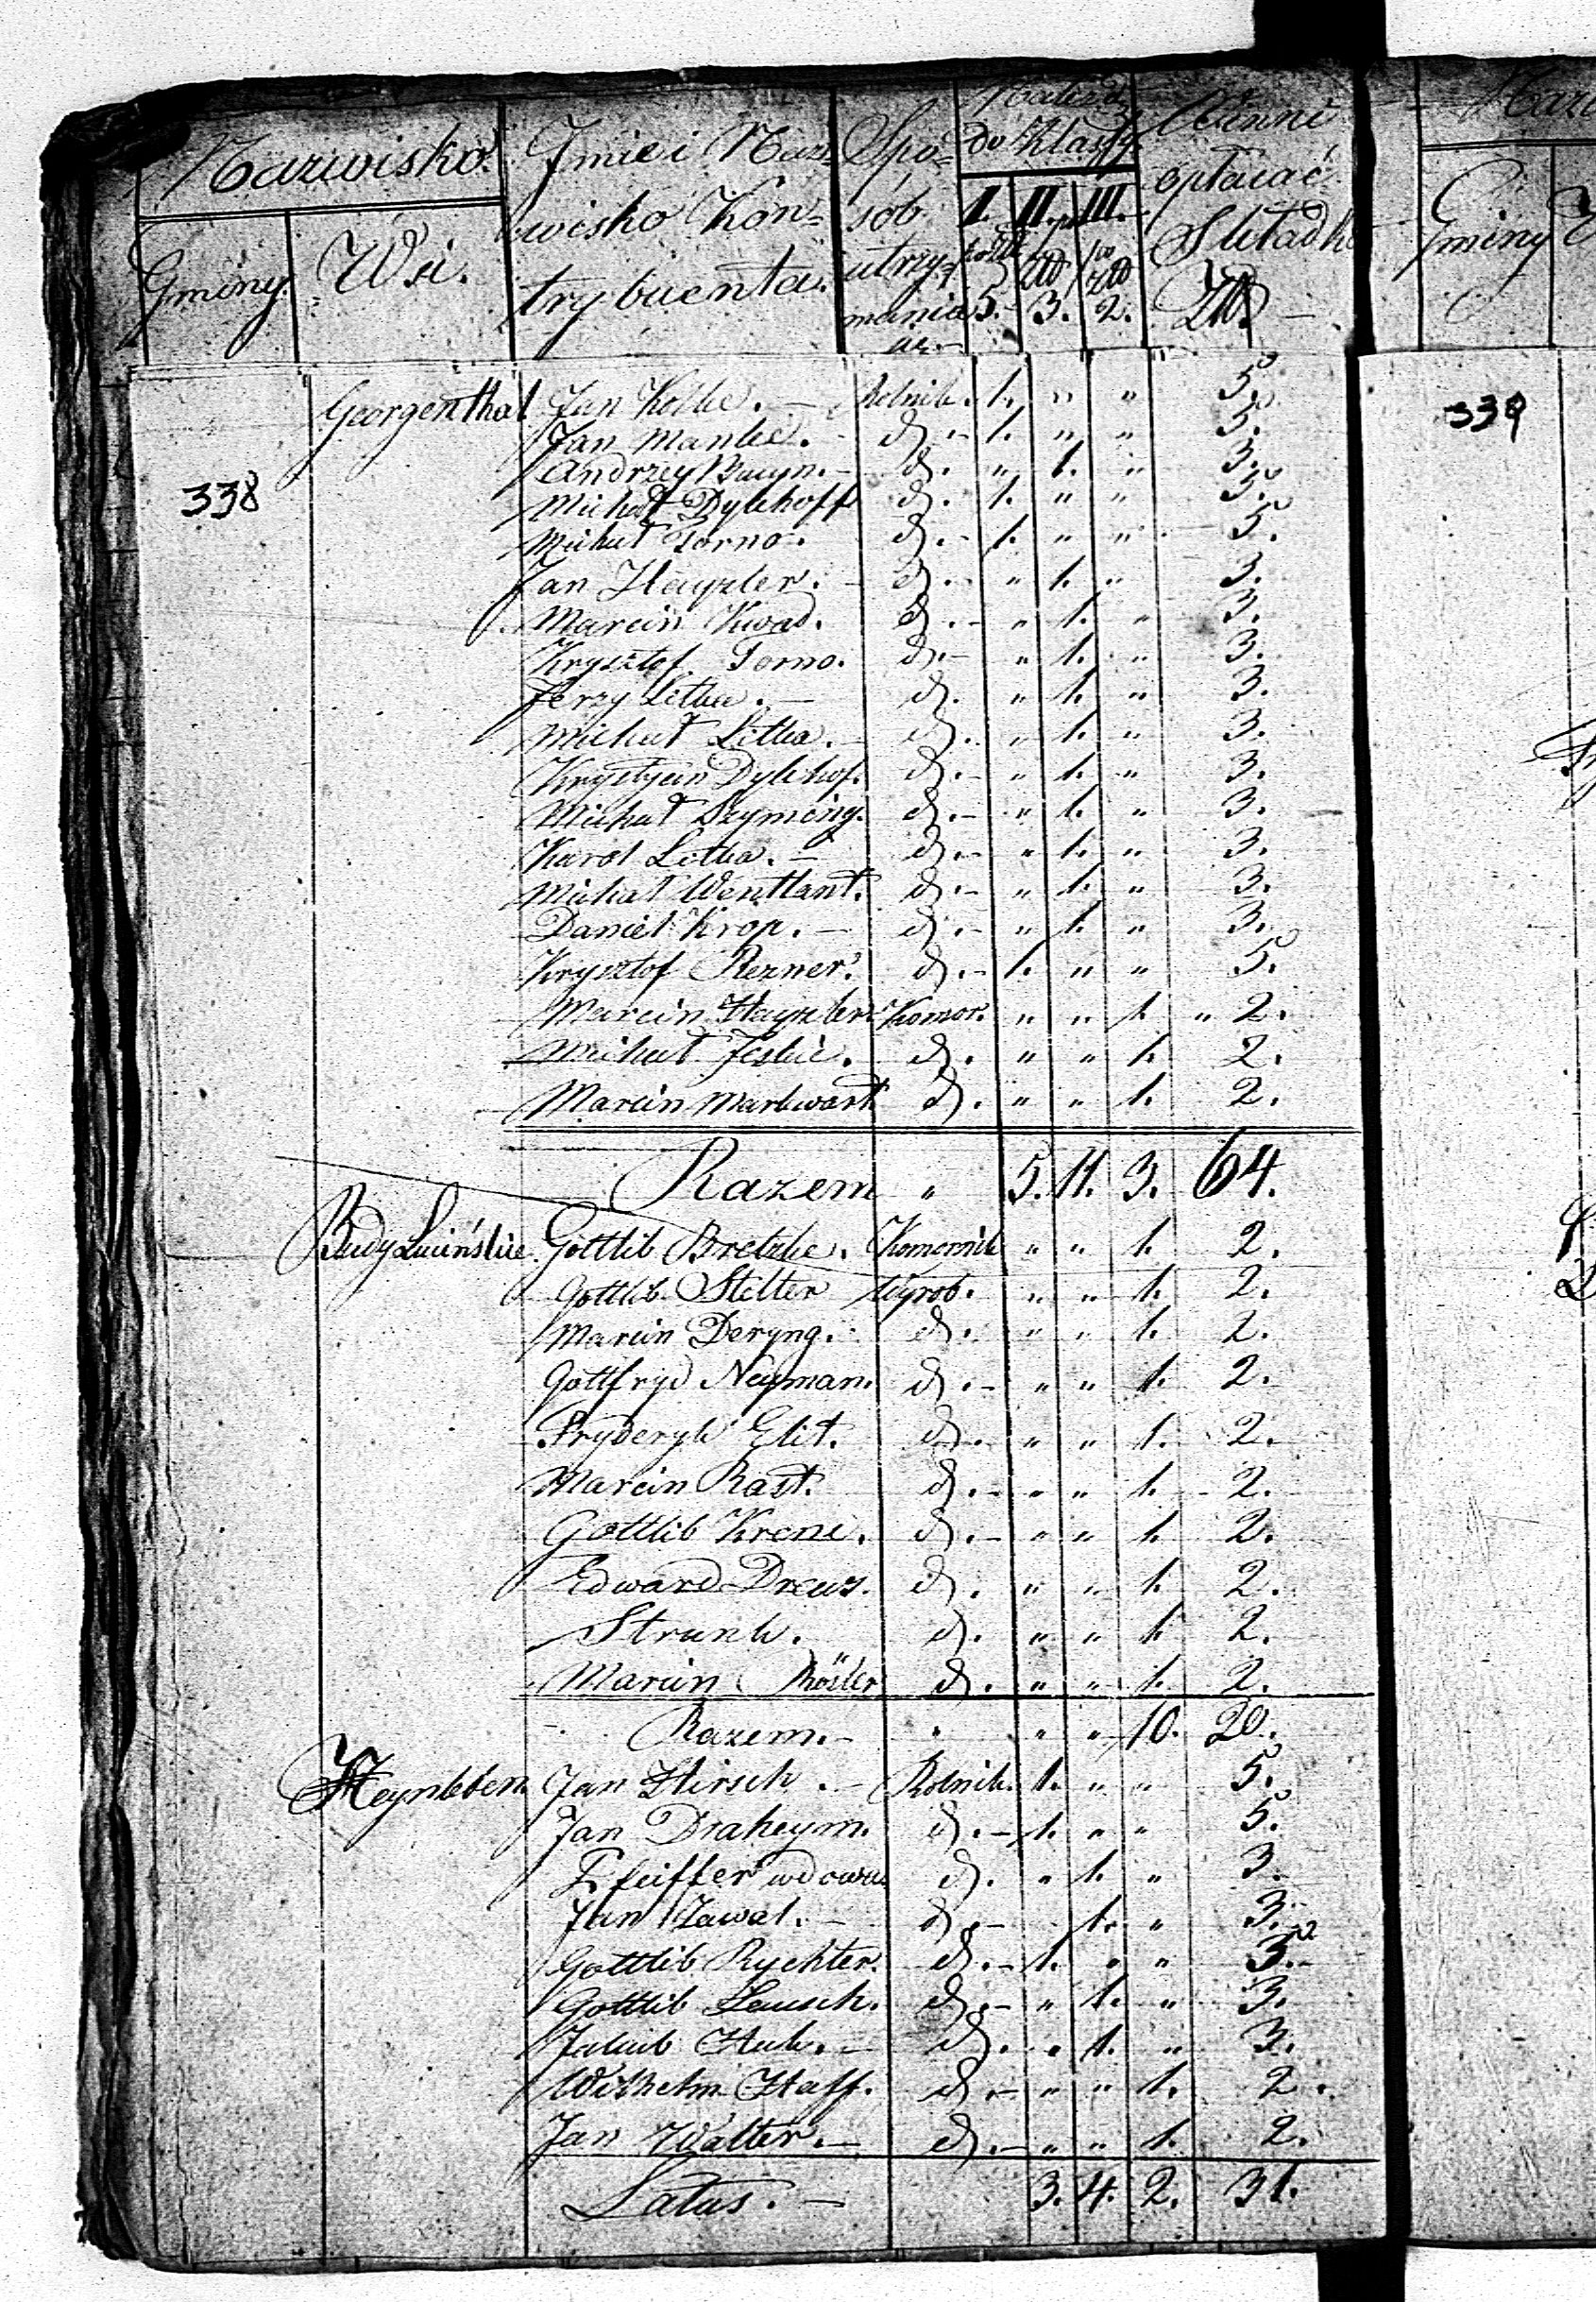 Nazwisko. Jmie i Naz= Spo= Należą Winni
Gminy. Wsi. wisko Kon= sób do Klassy. opłacać
trybuenta. utrzy= I. II. III. Składki
mania po Zł po Zł po Zł Złł
5. 3. 2.
338
Georgenthal Jan Kolke. Rolnik. 1. " " 5.
Jan Manke. d. 1. " " 5.
Andrzey d. " 1. " 3.
Michał Dykhoff d. 1. " " 5.
Michał Torno. d. 1. " " 5.
Jan Hayzler. d. " 1. " 3.
Marcin Kwad. d. " 1. " 3.
Krysztof Torno. d. " 1. " 3.
Jerzy Litka. d. " 1. " 3.
Michał Litka. d. " 1. " 3.
Krystyan Dykhof. d. " 1. " 3.
Michał Szyming. d. " 1. " 3.
Karol Litka. d. " 1. " 3.
Michał Wentlant. d. " 1. " 3.
Daniel Krop. d. " 1. " 3.
Krysztof Rezner. d. 1. " " 5.
Marcin Hayzler Komor. " " 1. " 2.
Michał Jeskie. d. " " 1. 2.
Marcin Markwart d. " " 1. 2.
Razem " 5. 11. 3. 64.
Budy Lucińskie Gottlib Bretzke. Komornik " " 1. 2.
Gottlib Stelter Wyrob. " " 1. 2.
Marcin Deryng. d. " " 1. 2.
Gottfryd Neyman. d. " " 1. 2.
Fryderyk Elit. d. " " 1. 2.
Marcin Rast. d. " " 1. 2.
Gottlib Krene. d. " " 1. 2.
Edward Drews. d. " " 1. 2.
Strunk. d. " " 1. 2.
Marcin Rösler d. " " 1. 2.
Razem. " " " 10. 20.
Heynleben Jan Hirsch. Rolnik. 1. " " 5.
Jan Draheym. d. 1. " " 5.
Pfeiffer wdowa d. " 1. " 3.
Jan Zawal. d. 1. " 3.
Gottlib Rychter. d. 1. " " 5.
Gottlib Lausch. d. " 1. " 3.
Jakub Huk. d. " 1. " 3.
Wilhelm Haff. d. " " 1. 2.
Jan Walter. d. " " 1. 2.
Latus. 3. 4. 2. 31.
Gminy
339